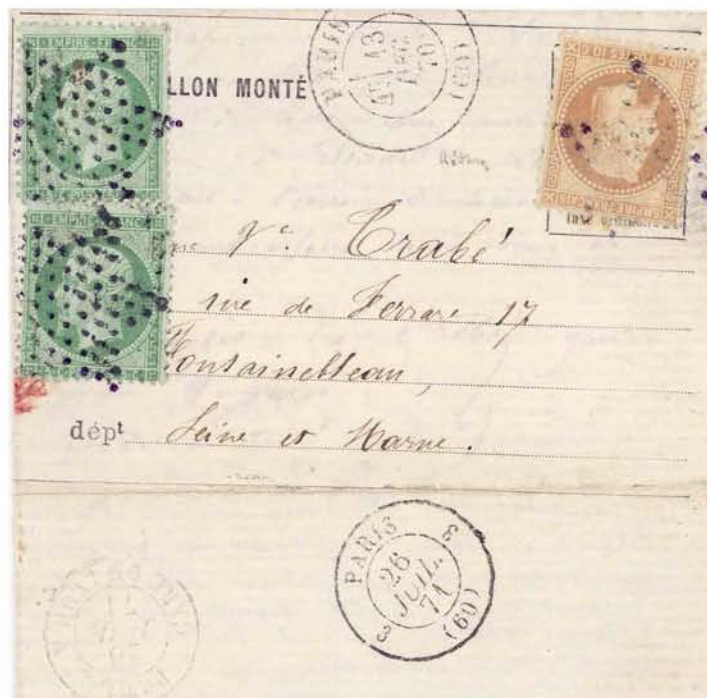 EMPIRE FRANC
PARIS
(60)
LLON MONTÉ
EMPIRE FRANC
Vᵉ. Trabé
rue de Ferrare - 17
Fontainebleau,
dépᵗ Seine et Marne.
PARIS
3
26
JUIL.
71
3
(60)